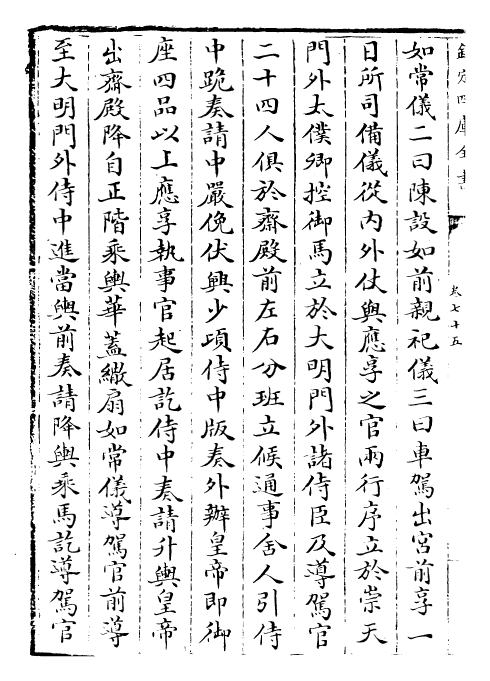 欽定四庫全書
卷七十五
如常儀二曰陳設如前親祀儀三曰車駕出宮前享一
日所司備儀從内外仗與應享之官兩行序立於崇天
門外太僕卿控御馬立於大明門外諸侍臣及導駕官
二十四人俱於齋殿前左右分班立候通事舍人引侍
中跪奏請中嚴俛伏興少項侍中版奏外辦皇帝即御
座四品以上應享執事官起居訖侍中奏請升輿皇帝
出齋殿降自正階乘輿華蓋繖扇如常儀導駕官前導
至大明門外侍中進當輿前奏請降輿乘馬訖導駕官